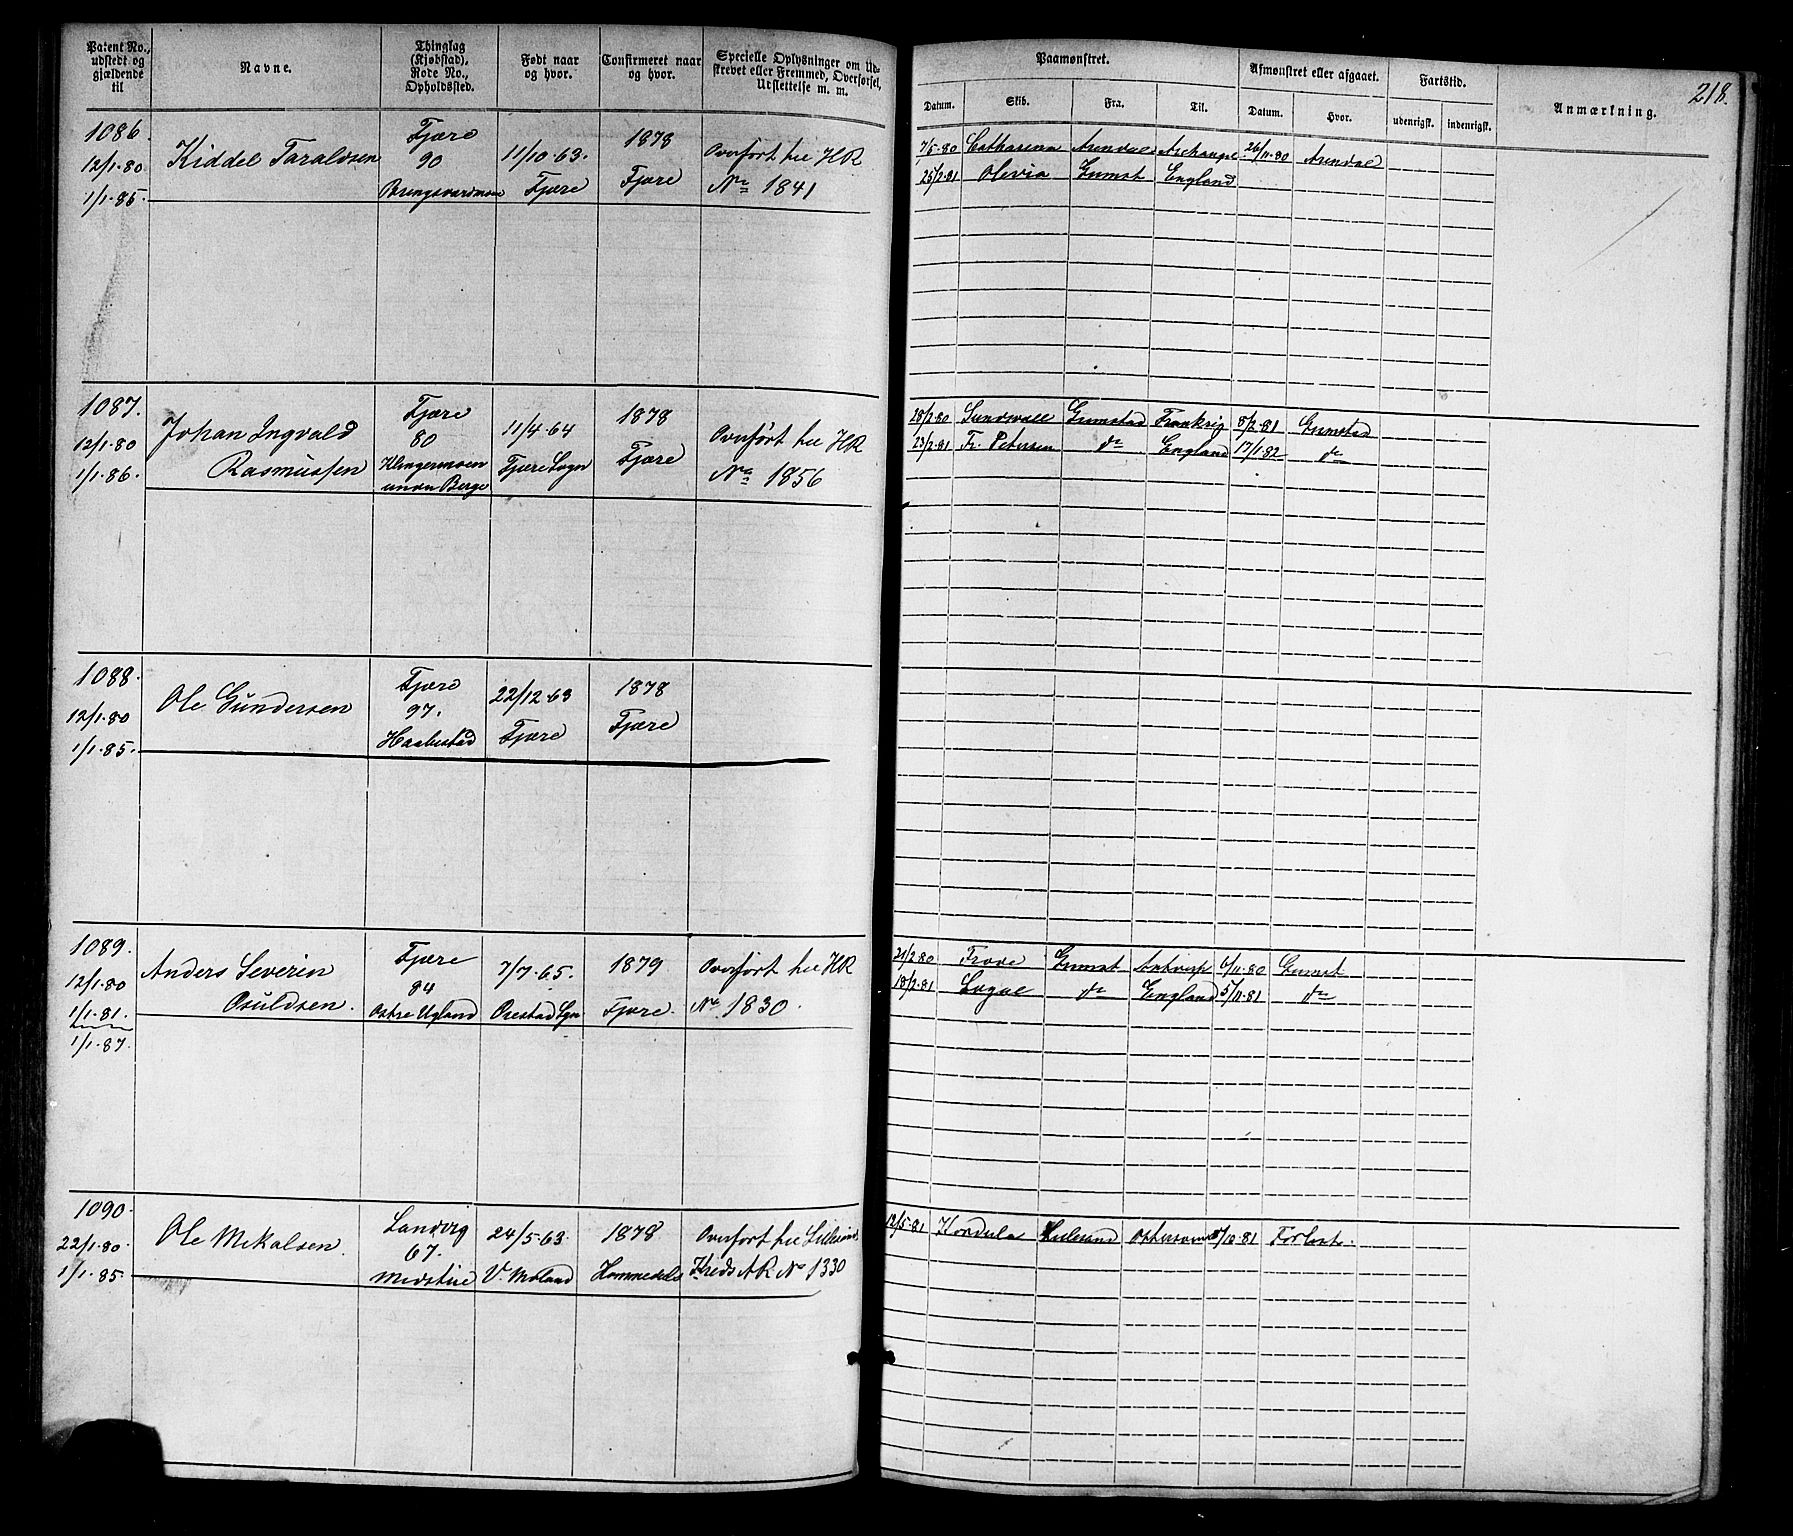 Patent No., udstedt og gjældende til
Navne.
Thinglag (Kjøbstad), Rode No., Opholdssted.
Født naar og hvor.
Confirmeret naar og hvor.
Specielle Oplysninger om Udskrevet eller Fremmed, Overførsel, Udslettelse m. m.
Paamønstret.
Datum. Skib. Fra. Til.
Afmønstret eller afgaaet.
Datum. Hvor.
Fartstid.
udenrigsk. indenrigsk.
Anmærkning.
218.
1086.
12/1·80
1/1·85.
Kiddel Taraldsen
Fjære
90
Bringsværdmoen
11/10·63.
Fjære
1878
Fjære
Overført til HR
No 1841
7/5·80 Catharina Arendal Archangel 26/11·80 Arendal
25/2·81 Olivia Grimst England
1087.
12/1·80
1/1·86.
Johan Ingvald
Rasmussen
Fjære
80
Klingermoen
under Berge
11/4·64
Fjære Sogn
1878
Fjære
Overført til HR
No 1856
28/2·80 Sundsvall Grimstad Frankrig 8/2·81 Grimstad
23/2·81 Fr. Petersen do England 17/1·82 do
1088.
12/1·80
1/1·85.
Ole Gundersen
Fjære
97.
Haabestad
22/12·63
Fjære
1878
Fjære
1089.
12/1·80
1/1·81.
1/1·87.
Anders Severin
Osuldsen.
Fjære
84
Østre Ugland
7/7·65.
Øiestad Sgn
1879
Fjære.
Overført til HR
No 1830.
21/2 80 Frode Grimst Antverp 6/11·80 Grimst
18/2·81 Logal do England 5/11·81 do
1090.
22/1·80.
1/1·85.
Ole Mikalsen.
Landvig
67.
Midstue
24/5·63.
V. Moland
1878.
Hommedals
Overført til Lillesands
Kreds AR No 1330
12/5·81 Kordula 8/10·81 Forlist.